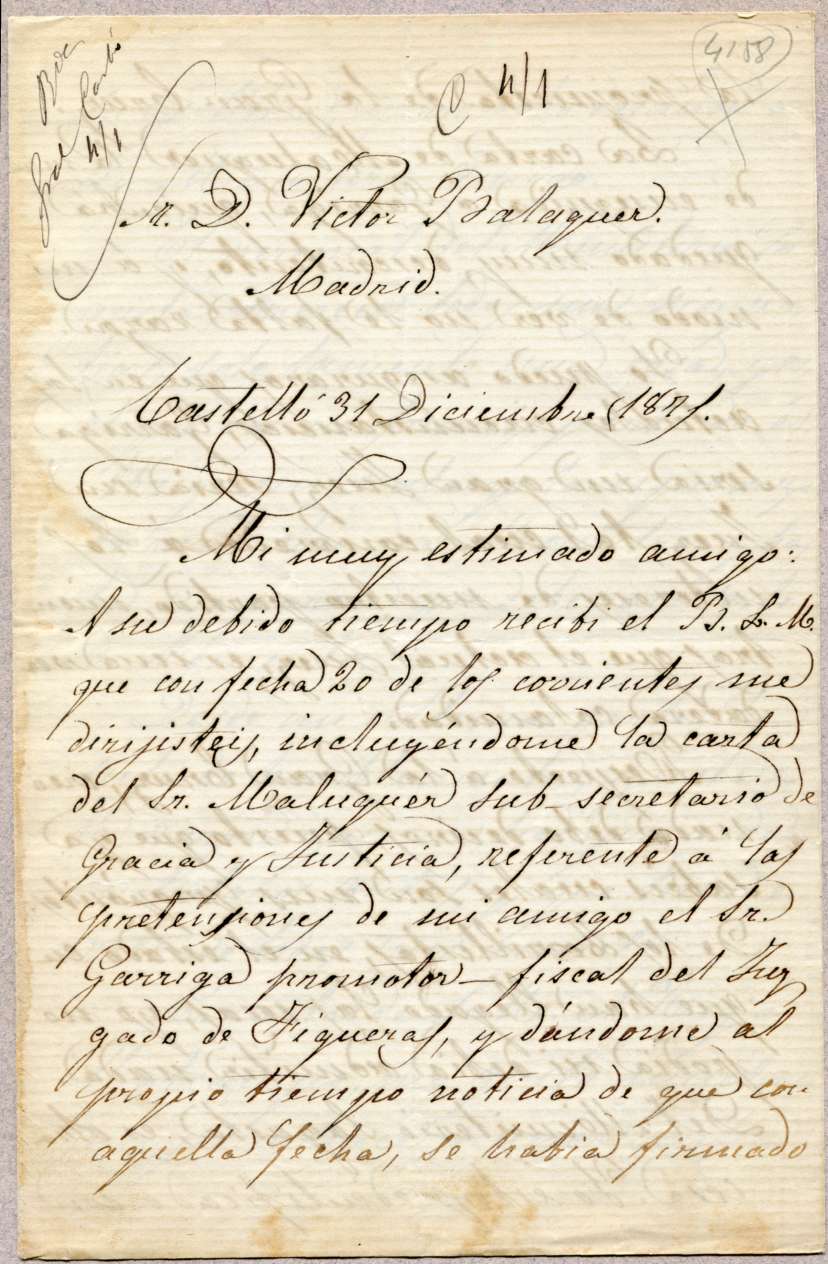 4158
C 4/1
4/1
Sr. D. Victor Balaguer.
Madrid.
Castelló 31 Diciembre 1871.
Mi muy estimado amigo:
A su debido tiempo recibi el B. L. M.
que con fecha 20 de los corrientes me
dirijisteis, incluyéndome la carta
del Sr. Maluquér sub-secretario de
Gracia y Justicia, referente á las
pretensiones de mi amigo el Sr.
Garriga promotor-fiscal del Juz
gado de Figueras, y dándome al
propio tiempo noticia de que con
aquella fecha, se habia firmado